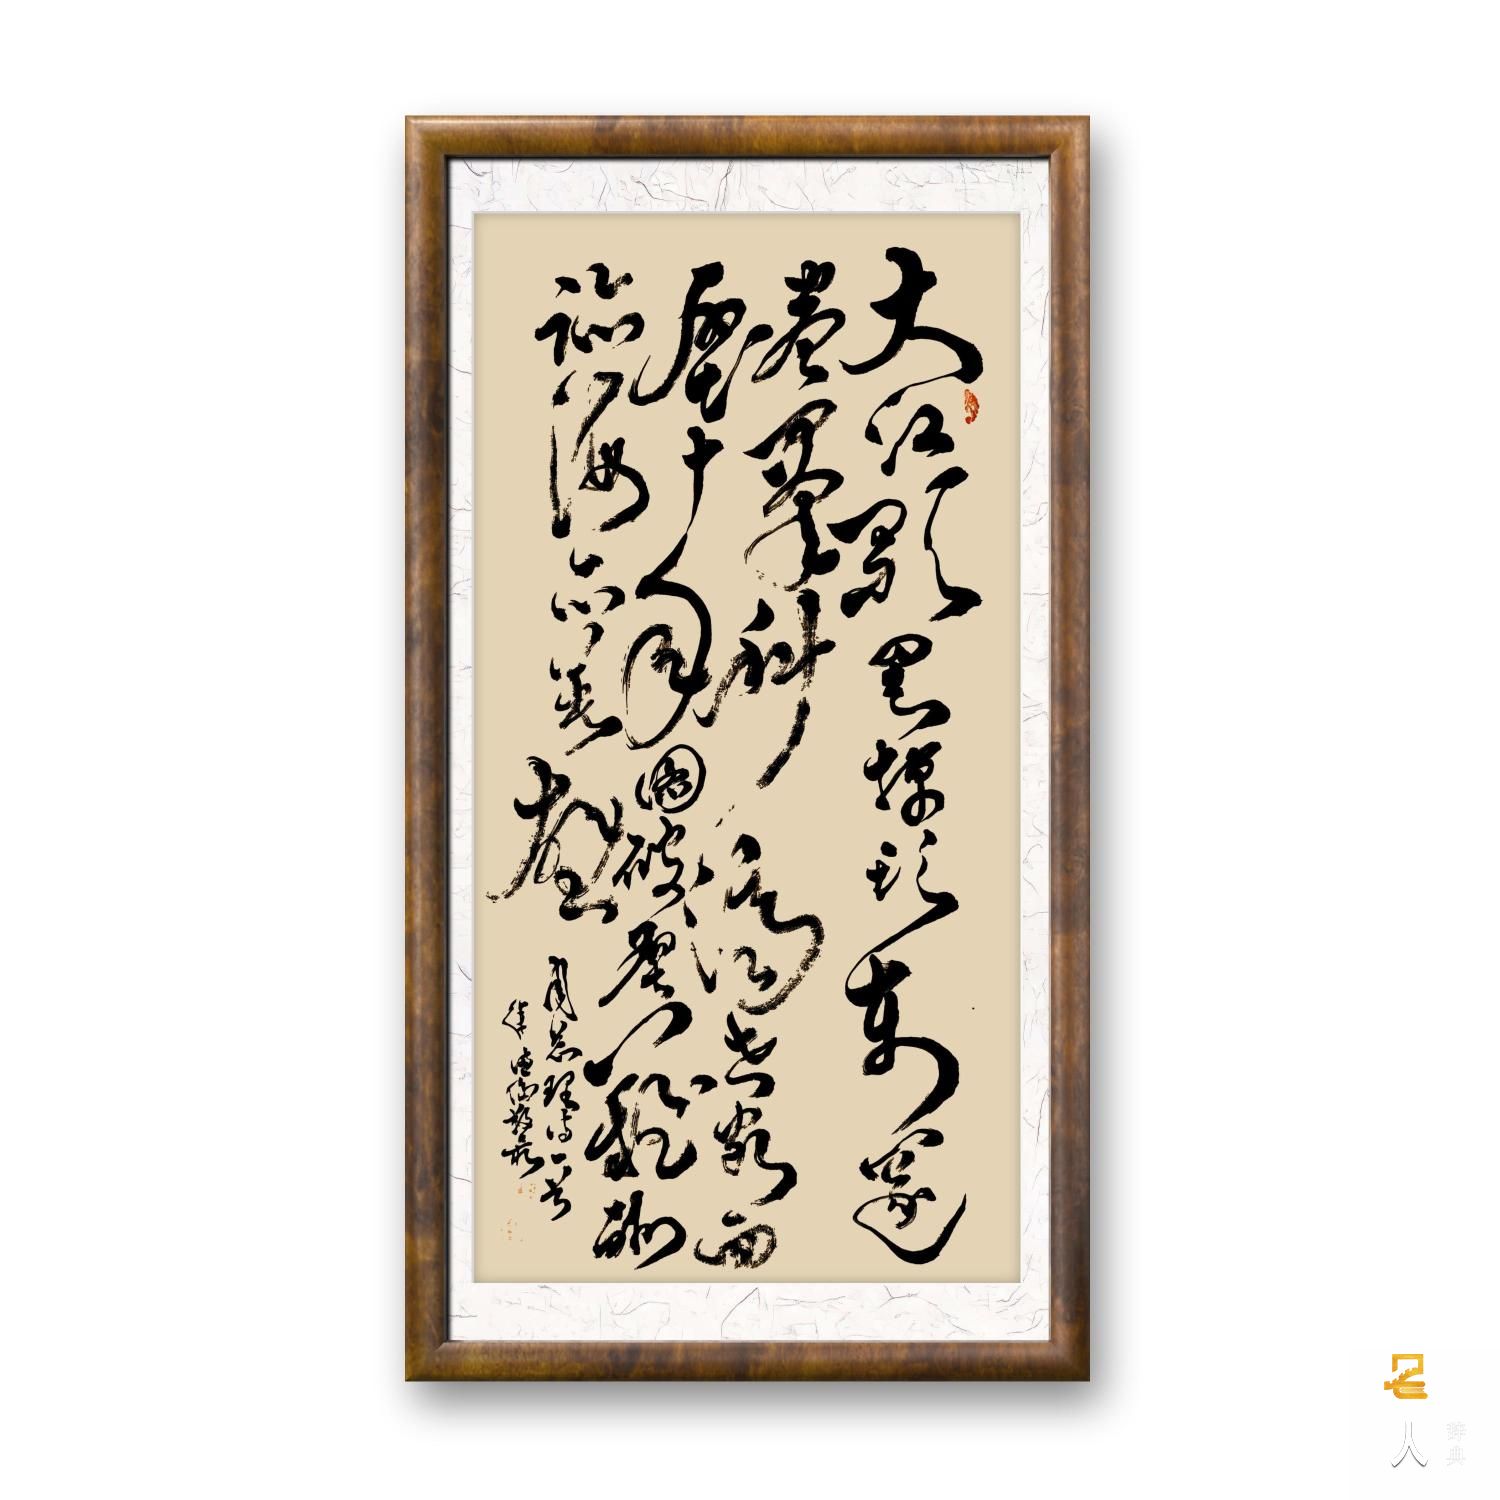 大江歌罢掉头东邃
密群科济世穷面
壁十年图破壁难酬
蹈海亦英雄
周总理诗一首
名人辞典